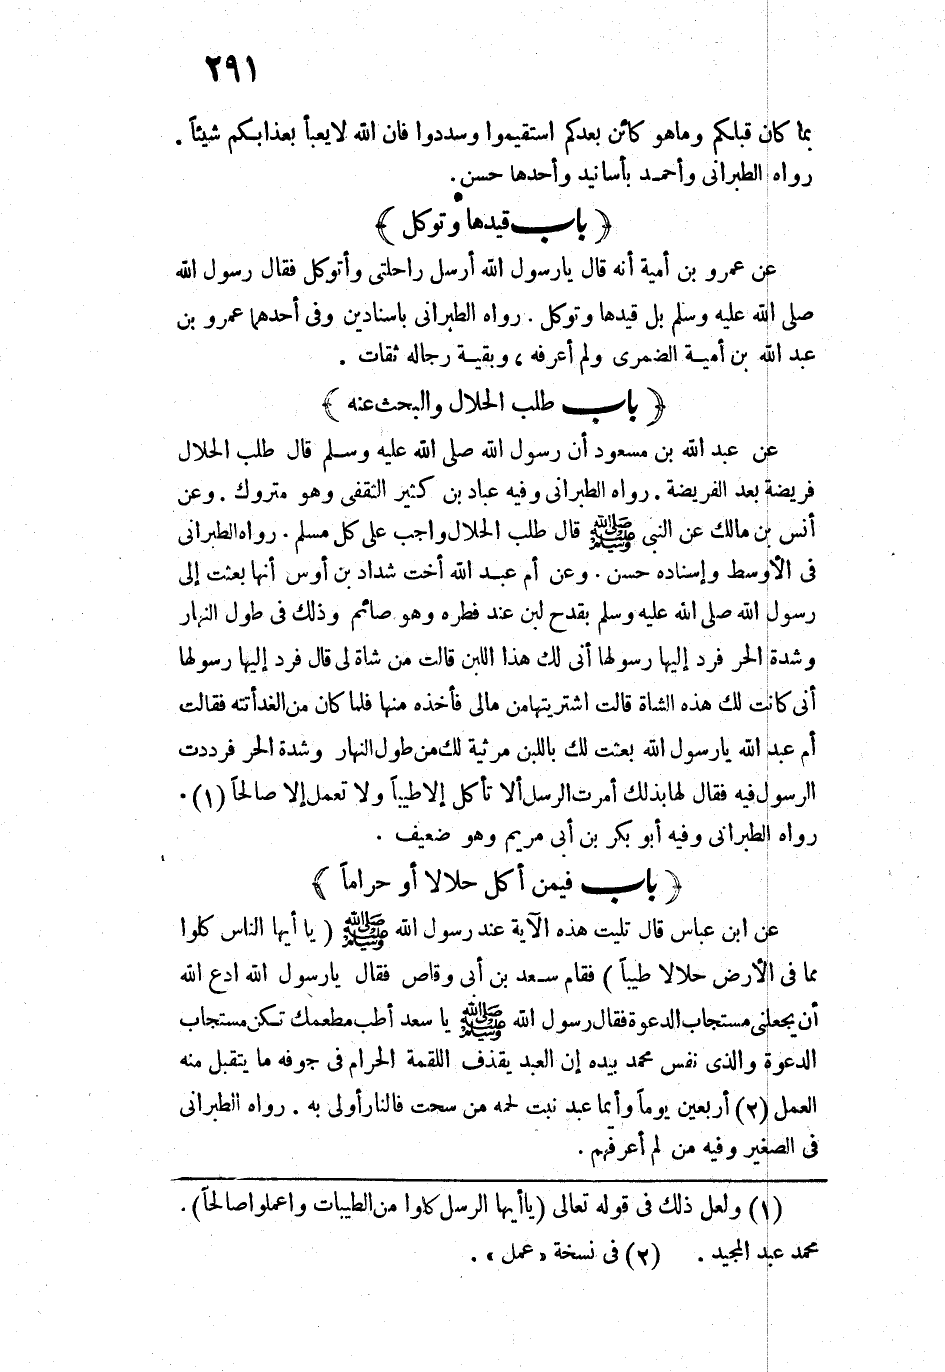 ٢٩١
بما كان قبلكم وماهو كائن بعدكم استقيموا وسددوا فان الله لا يعبأ بعذابكم شيئاً .
رواه الطبرانى وأحمد بأسانيد وأحدها حسن .
﴿ باب قيدها وتوكل ﴾
عن عمرو بن أمية أنه قال يارسول الله أرسل راحلتى وأتوكل فقال رسول الله
صلى الله عليه وسلم بل قيدها وتوكل . رواه الطبرانى باسنادين وفى أحدهما عمرو بن
عبد الله بن أمية الضمرى ولم أعرفه ، وبقية رجاله ثقات .
﴿ باب طلب الحلال والبحث عنه ﴾
عن عبد الله بن مسعود أن رسول الله صلى الله عليه وسلم قال طلب الحلال
فريضة بعد الفريضة . رواه الطبرانى وفيه عباد بن كثير الثقفى وهو متروك . وعن
أنس بن مالك عن النبى ﷺ قال طلب الحلال واجب على كل مسلم . رواه الطبرانى
فى الأوسط وإسناده حسن . وعن أم عبد الله أخت شداد بن أوس أنها بعثت إلى
رسول الله صلى الله عليه وسلم بقدح لبن عند فطره وهو صائم وذلك فى طول النهار
وشدة الحر فرد إليها رسولها أنى لك هذا اللبن قالت من شاة لى قال فرد إليها رسولها
أنى كانت لك هذه الشاة قالت اشتريتها من مالى فأخذه منها فلما كان من الغد أتته فقالت
أم عبد الله يارسول الله بعثت لك باللبن مرثية لك من طول النهار وشدة الحر فرددت
الرسول فيه فقال لها بذلك أمرت الرسل ألا تأكل إلا طيباً ولا تعمل إلا صالحاً (١) .
رواه الطبرانى وفيه أبو بكر بن أبى مريم وهو ضعيف .
﴿ باب فيمن أكل حلالا أو حراماً ﴾
عن ابن عباس قال تليت هذه الآية عند رسول الله ﷺ ( يا أيها الناس كلوا
مما فى الأرض حلالا طيباً ) فقام سعد بن أبى وقاص فقال يارسول الله ادع الله
أن يجعلنى مستجاب الدعوة فقال رسول الله ﷺ يا سعد أطب مطعمك تكن مستجاب
الدعوة والذى نفس محمد بيده إن العبد يقذف اللقمة الحرام فى جوفه ما يتقبل منه
العمل (٢) أربعين يوماً وأيما عبد نبت لحمه من سحت فالنار أولى به . رواه الطبرانى
فى الصغير وفيه من لم أعرفهم .
(١) ولعل ذلك فى قوله تعالى (ياأيها الرسل كلوا من الطيبات واعملوا صالحاً) .
محمد عبد المجيد . (٢) فى نسخة «عمل» .